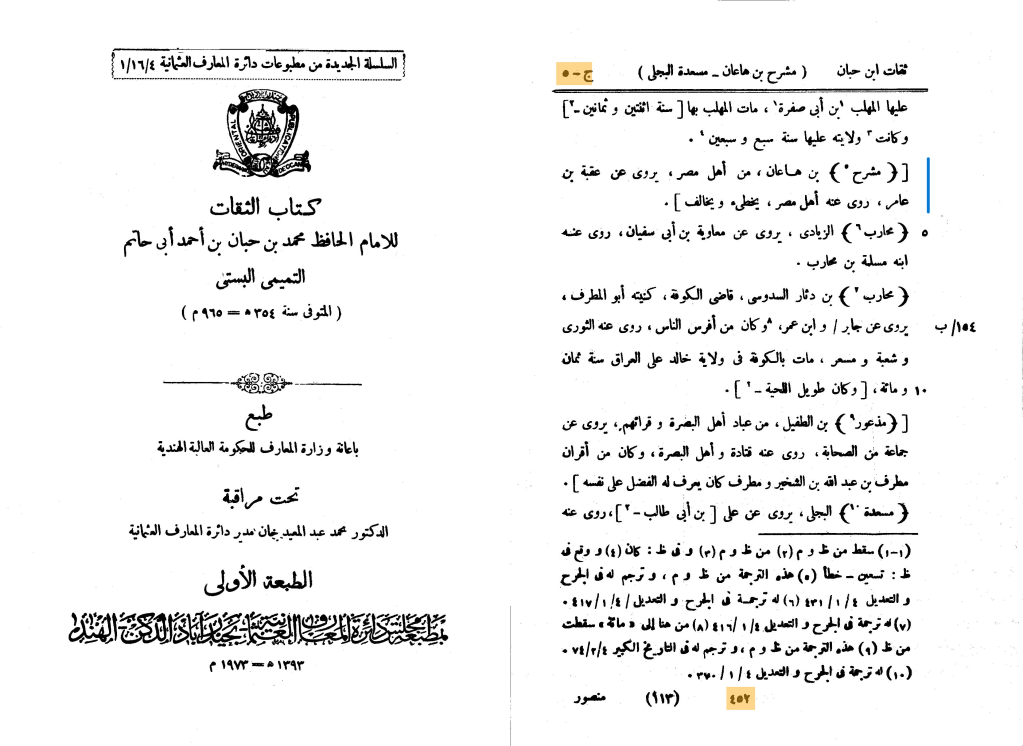 السلسلة الجديدة من مطبوعات دائرة المعارف العثمانية ١/١٦/٤
كتاب الثقات
للامام الحافظ محمد بن حبان بن أحمد أبى حاتم
التميمى البستى
( المتوفى سنة ٣٥٤ ھ = ٩٦٥ م )
طبع
باعانة وزارة المعارف للحكومة العالية الهندية
تحت مراقبة
الدكتور محمد عبد المعيد خان مدير دائرة المعارف العثمانية
الطبعة الأولى
بمطبعة مجلس دائرة المعارف العثمانية بحيدر آباد الدكن الهند
١٣٩٣ ھ = ١٩٧٣ م
ثقات ابن حبان ( مشرح بن هاعان ـ مسعدة البجلى ) ج - ٥
عليها المهلب ١بن أبى صفرة١ ، مات المهلب بها [ سنة اثنتين و ثمانين ـ٢]
وكانت٣ ولايته عليها سنة سبع و سبعين٤ .
[ ﴿ مشرح٥ ﴾ بن هاعان ، من أهل مصر ، يروى عن عقبة بن
عامر ، روى عنه أهل مصر ، يخطىء و يخالف ] .
٥ ﴿ محارب٦ ﴾ الزيادى ، يروى عن معاوية بن أبى سفيان ، روى عنه
ابنه مسلمة بن محارب .
﴿ محارب٧ ﴾ بن دثار السدوسى ، قاضى الكوفة ، كنيته أبو المطرف ،
يروى عن جابر / و ابن عمر، ٨وكان من أفرس الناس ، روى عنه الثورى ١٥٤/ ب
و شعبة و مسعر ، مات بالكوفة فى ولاية خالد على العراق سنة ثمان
و مائة ، [ وكان طويل اللحية ـ٢ ] . ١٠
[ ﴿مذعور٩ ﴾ بن الطفيل ، من عباد أهل البصرة و قرائهم ، يروى عن
جماعة من الصحابة ، روى عنه قتادة و أهل البصرة ، وكان من أقران
مطرف بن عبد الله بن الشخير و مطرف كان يعرف له الفضل على نفسه ] .
﴿ مسعدة١٠ ﴾ البجلى ، يروى عن على [ بن أبى طالب ـ٢ ] ، روى عنه
(١-١) سقط من ظ و م (٢) من ظ و م (٣) و فى ظ : كان (٤) و وقع فى
ظ : تسعين ـ خطأ (٥) هذه الترجمة من ظ و م ، و ترجم له فى الجرح
و التعديل ٤/ ١ /٤٣١ (٦) له ترجمة فى الجرح و التعديل ٤/ ١ /٤١٧ .
(٧) له ترجمة فى الجرح و التعديل ٤/ ١ /٤١٦ (٨) من هنا إلى « مائة » سقطت
من ظ (٩) هذه الترجمة من ظ و م ، و ترجم له فى التاريخ الكبير ٤/٢/ ٧٤ .
(١٠) له ترجمة فى الجرح و التعديل ٤ / ١ / ٣٧٠ .
٤٥٢ (١١٣) منصور